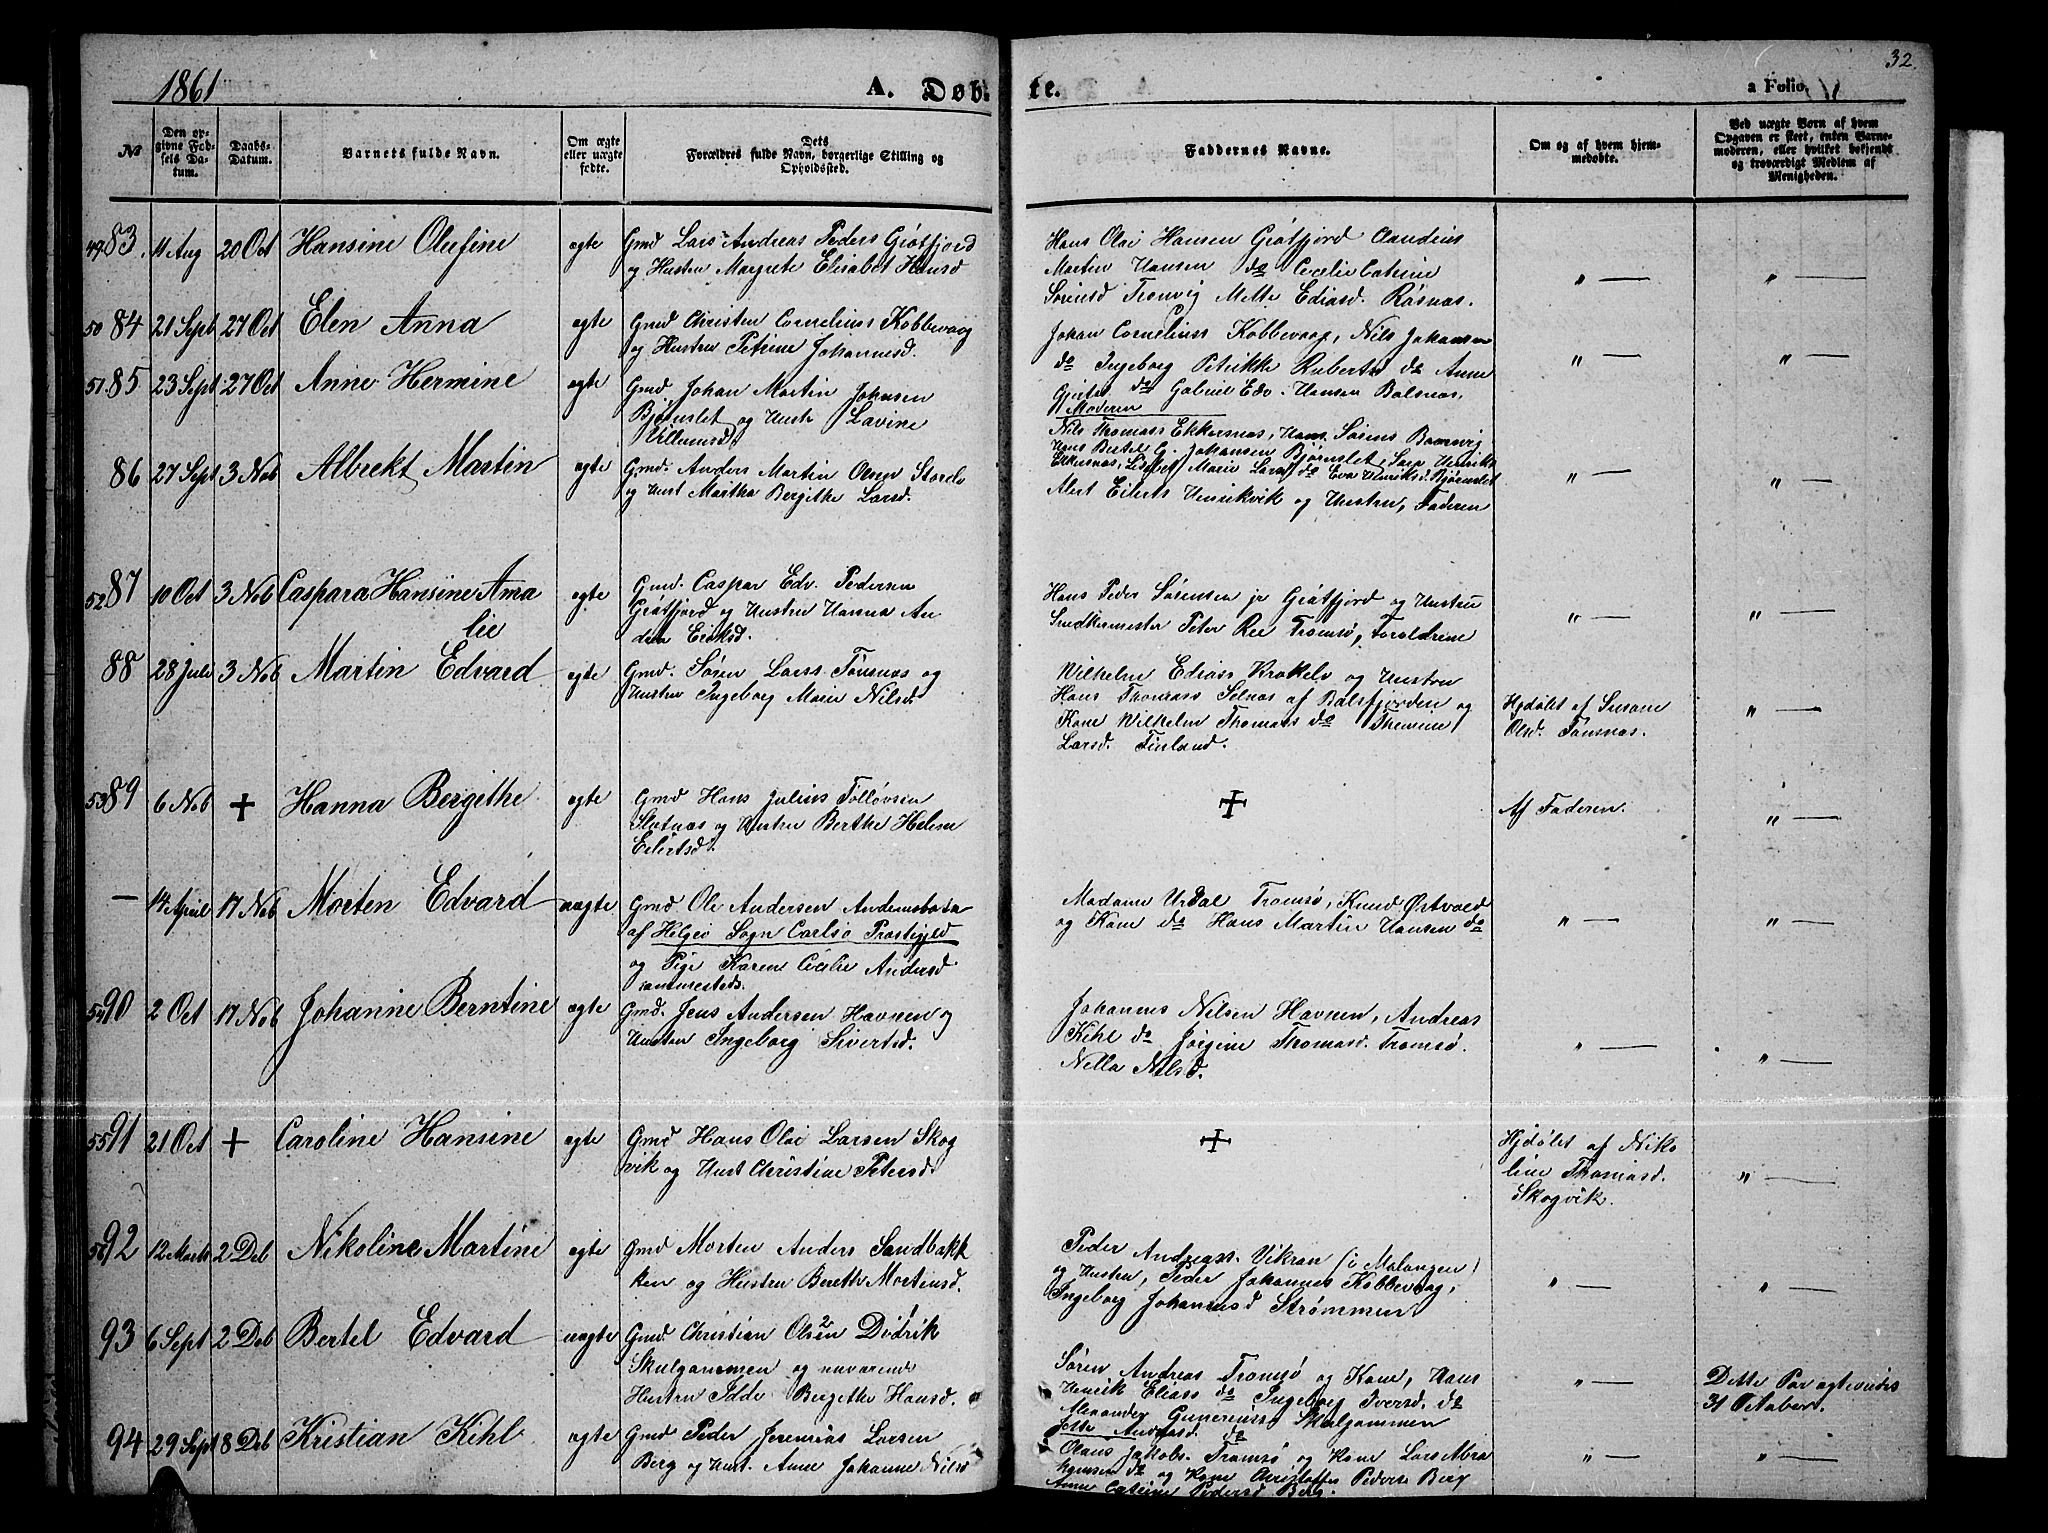 1861
A. Døb-
te.
32.
a Folio.
№
Den op-
givne Fød-
sels Da-
tum.
Daabs-
Datum.
Barnets fulde Navn.
Om ægte
eller uægte
fødte.
Dets
Forældres fulde Navn, borgerlige Stilling og
Opholdssted.
Faddernes Navne.
Om og af hvem hjem-
medøbte.
Ved uægte Børn af hvem
Opgaven er skeet, enten Barne-
moderen, eller hvilket bekjendt
og troværdigt Medlem af
Menigheden.
49 83. 11 Aug 20 Oct Hansine Olufine ægte Gmd Lars Andreas Peders Grøtfjord
og Hustru Margrete Elisabet Hansd
Hans Olai Hansen Grøtfjord Claudius
Martin Hansen do Cecelie Catrine
Sørensd Tromvig Mette Ediasd. Råsnæs.
" — " —
50 84 21 Sept 27 Oct Elen Anna ægte Gmd Christen Cornelius Kobbevaag
og Hustru Petrine Johannesd.
Johan Cornelius Kobbevaag, Nils Johansen
do Ingeborg Petrikke Roberts do Anne
Gjertsd do Gabriel Edv. Hansen Balsnæs.
" — " —
51 85 23 Sept 27 Oct Anne Hermine ægte Gmd. Johan Martin Johnsen
Bjørnslet og Hustr Lavine
Villumsd.
Moderen
Nils Thomass Ekkersnæs, Hans Sørens Bamvig
Hans Bertel G. Johansen Bjørnslet, Henrik
Ekkersnæs, Marie Larsd do Eva Henriksd. Bjørnslet
86 27 Sept 3 Nob Albrekt Martin ægte Gmd. Anders Martin Olsen Storelv
og Hust Martha Bergithe Larsd.
Alert Eilerts Henrikvik og Hustru, Faderen
" — " —
52 87 10 Oct 3 Nob Caspara Hansine Ama
lie
ægte Gmd. Caspar Edv. Pedersen
Grøtfjord og Hustru Hanna An
drea Eriksd.
Hans Peder Sørensen jr Grøtfjord og Hustru
Snedkermester Peter Ree Tromsø, Forældrene
" — " —
88 28 Juli 3 Nob Martin Edvard ægte Gmd. Søren Larss. Tønsnæs og
Hustru Ingeborg Marie Nilsd
Wilhelm Ediass Krokelv og Hustru
Hans Thomass Selnæs af Balsfjorden og
Kone Wilhelm Thomass do
Larsd. Finland.
Hjdøbt af Susane
Olsd. Tønsnæs.
" —
53 89 6 Nob + Hanna Bergithe ægte Gmd Hans Julius Tolløvsen
Sletnæs og Hustru Berthe Helene
Eilertsd.
+
Af Faderen.
" —
— 14 April 17 Nob Morten Edvard uægte Gmd Ole Andersen
af Helgø Sogn Carlsø Prestegjeld
og Pige Karen Cecilie Andersd
sammesteds.
Madame Urdal Tromsø, Knud Østvold
og Kone do Hans Martin Hansen do
" — " —
54 90 2 Oct 17 Nob Johanine Berntine ægte Gmd. Jens Andersen Havnen og
Hustru Ingeborg Sivertsd.
Johannes Nilsen Havnen, Andreas
Kihl do Jørgine Thomasd. Tromsø.
Nella Nilsd.
" — " —
55 91 21 Oct + Caroline Hansine ægte Gmd Hans Olai Larsen Skog
vik og Hust Christine Petersd.
+
Hjdøbt af Niko
line Thomasd.
Skogvik.
" —
56 92 12 Marts 2 Deb Nikoline Martine ægte Gmd Morten Anders Sandbakk
ken og Hustru Berethe Mortensd.
Peder Andreass. Vikran (i Malangen)
og Hustru, Peder Johannes Kobbevaag,
Ingeborg Johannesd Strømmen
" — " —
93 6 Sept 2 Deb Bertel Edvard uægte Gmd. Christian Olsen Didrik
Skulgammen og nuværende
Hustru Idde Bergithe Hansd.
Søren Andreas Tromsø og Kone, Hans
Henrik Eliass do Ingeborg Iversd. do
Alexander Gunerius Skulgammen
Jette Andersd. do
" — Dette Par ægteviedes
31 October.
94 29 Sept 8 Deb Kristian Kihl ægte Gmd Peder Jeremias Larsen
Berg og Hust. Anne Johanne Nilsd
Olaus Jakobs. Tromsø og Kone Lars Abra
hamsen do og Kone Christoffer Peders Berg
Anne Catrine Pedersd Berg.
" — " —